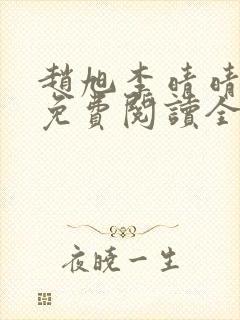 趙旭李晴晴
免費閱讀全
夜曉一生